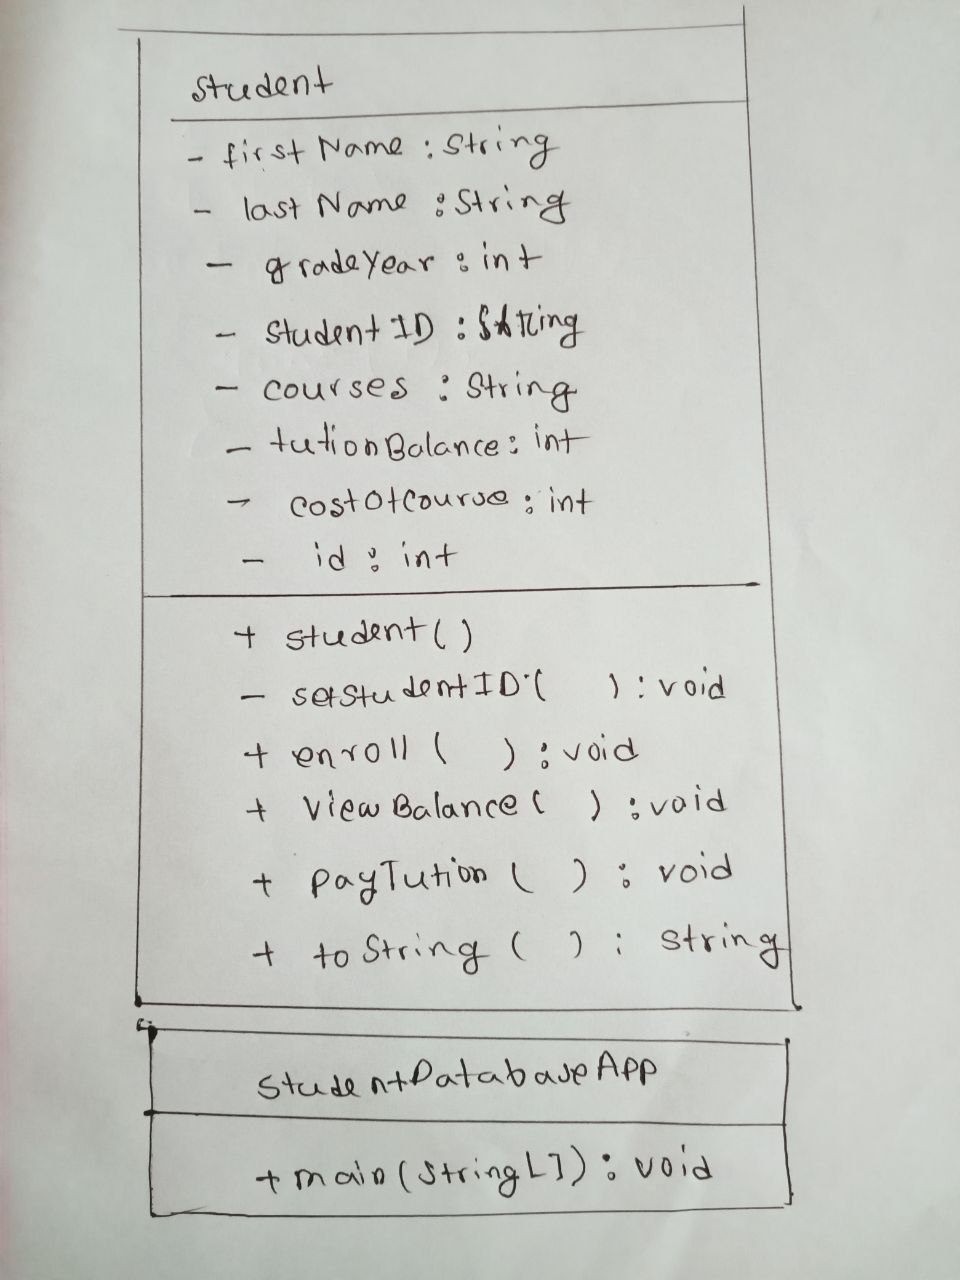 Student
- first Name : String
- last Name : String
- gradeYear : int
- Student ID : String
- courses : String
- tutionBalance : int
- costOfCourse : int
- id : int
+ student()
- setStudentID( ) : void
+ enroll ( ) : void
+ View Balance ( ) : void
+ payTution ( ) : void
+ to String ( ) : string
StudentDatabaseApp
+ main (String[]) : void